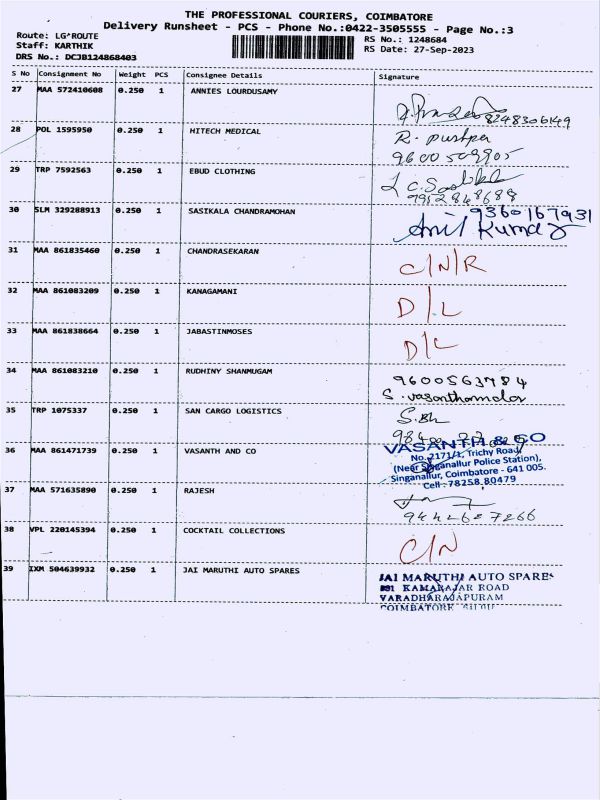 THE PROFESSIONAL COURIERS, COIMBATORE
Delivery Runsheet - PCS - Phone No.:0422-3505555 - Page No.:3
Route: LG*ROUTE
RS No.: 1248684
Staff: KARTHIK
RS Date: 27-Sep-2023
DRS No.: DCJB124868403
S No Consignment No Weight PCS Consignee Details Signature
27 MAA 572410608 0.250 1 ANNIES LOURDUSAMY
8248306149
28 POL 1595950 0.250 1 HITECH MEDICAL R. pushpa
9600509905
29 TRP 7592563 0.250 1 EBUD CLOTHING
9952848688
30 SLM 329288913 0.250 1 SASIKALA CHANDRAMOHAN 9360167931
Anil Kumar
31 MAA 861835460 0.250 1 CHANDRASEKARAN C/N/R
32 MAA 861083209 0.250 1 KANAGAMANI D/L
33 MAA 861838664 0.250 1 JABASTINMOSES D/L
34 MAA 861083210 0.250 1 RUDHINY SHANMUGAM 9600563784
S. vasanthamala
35 TRP 1075337 0.250 1 SAN CARGO LOGISTICS
36 MAA 861471739 0.250 1 VASANTH AND CO VASANTH & CO
No. 2171/1, Trichy Road,
(Near Singanallur Police Station),
Singanallur, Coimbatore - 641 005.
Cell : 78258 80479
37 MAA 571635890 0.250 1 RAJESH
9442627266
38 VPL 220145394 0.250 1 COCKTAIL COLLECTIONS C/N
39 IXM 504639932 0.250 1 JAI MARUTHI AUTO SPARES JAI MARUTHI AUTO SPARES
KAMARAJAR ROAD
VARADHARAJAPURAM
COIMBATORE